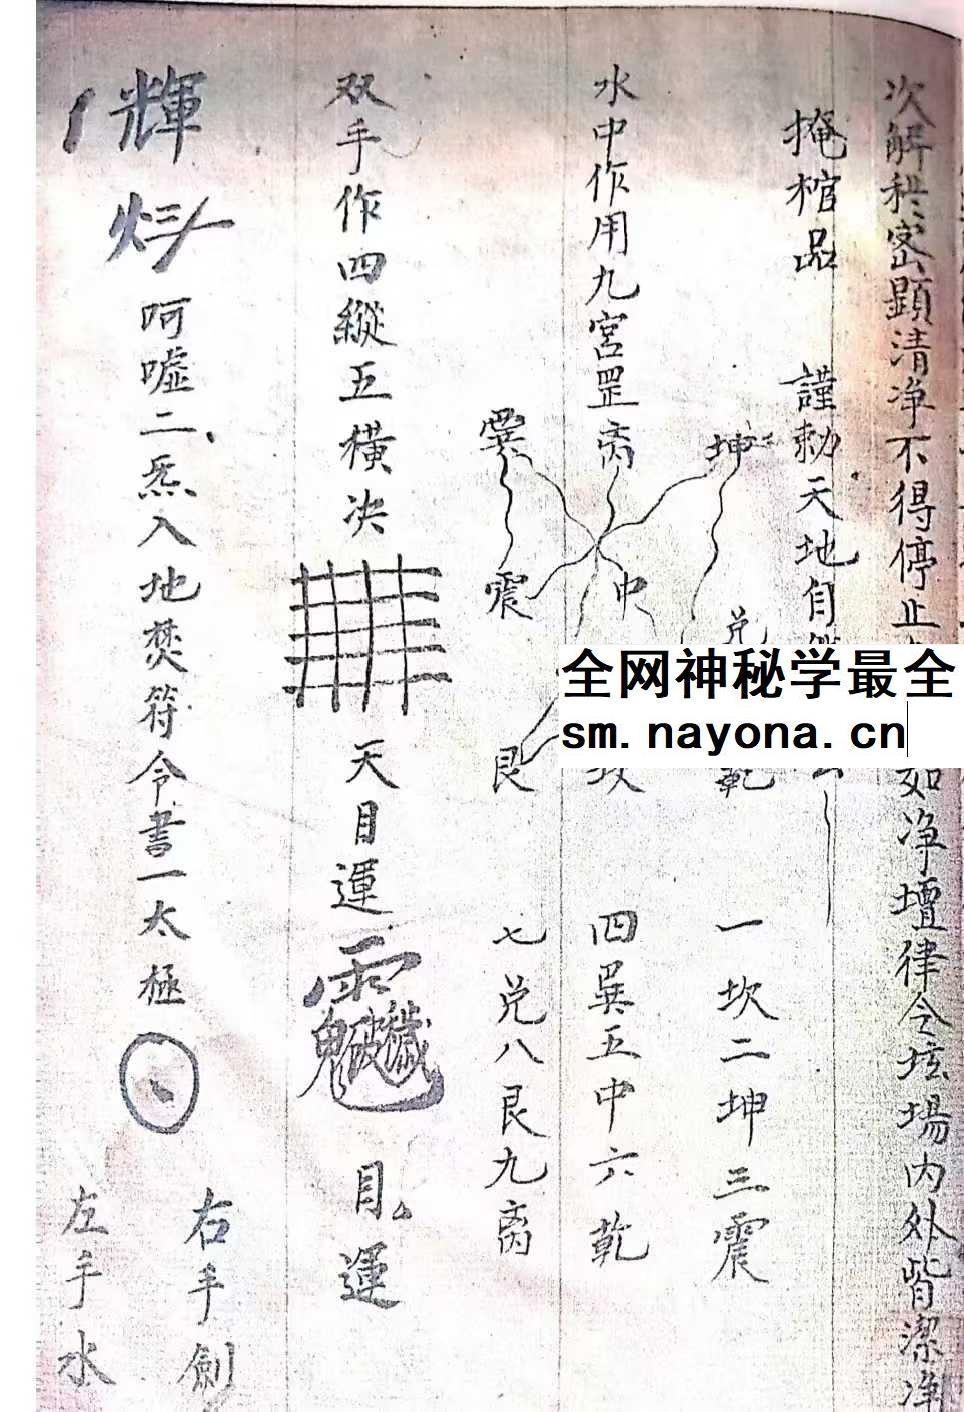 次解秽密顕清净不得停止
如净壇律令坛場内外皆潔净
掩棺品
謹勅天地自
水中作用九宮罡
离
坤
巽
震
中
兑
艮
坎
乾
一坎二坤三震
四巽五中六乾
七兑八艮九离
双手作四縱五横决
天目運
目運
輝
呵嘘二炁入地焚符令書一太極
右手劍
左手水
全网神秘学最全
sm.nayona.cn